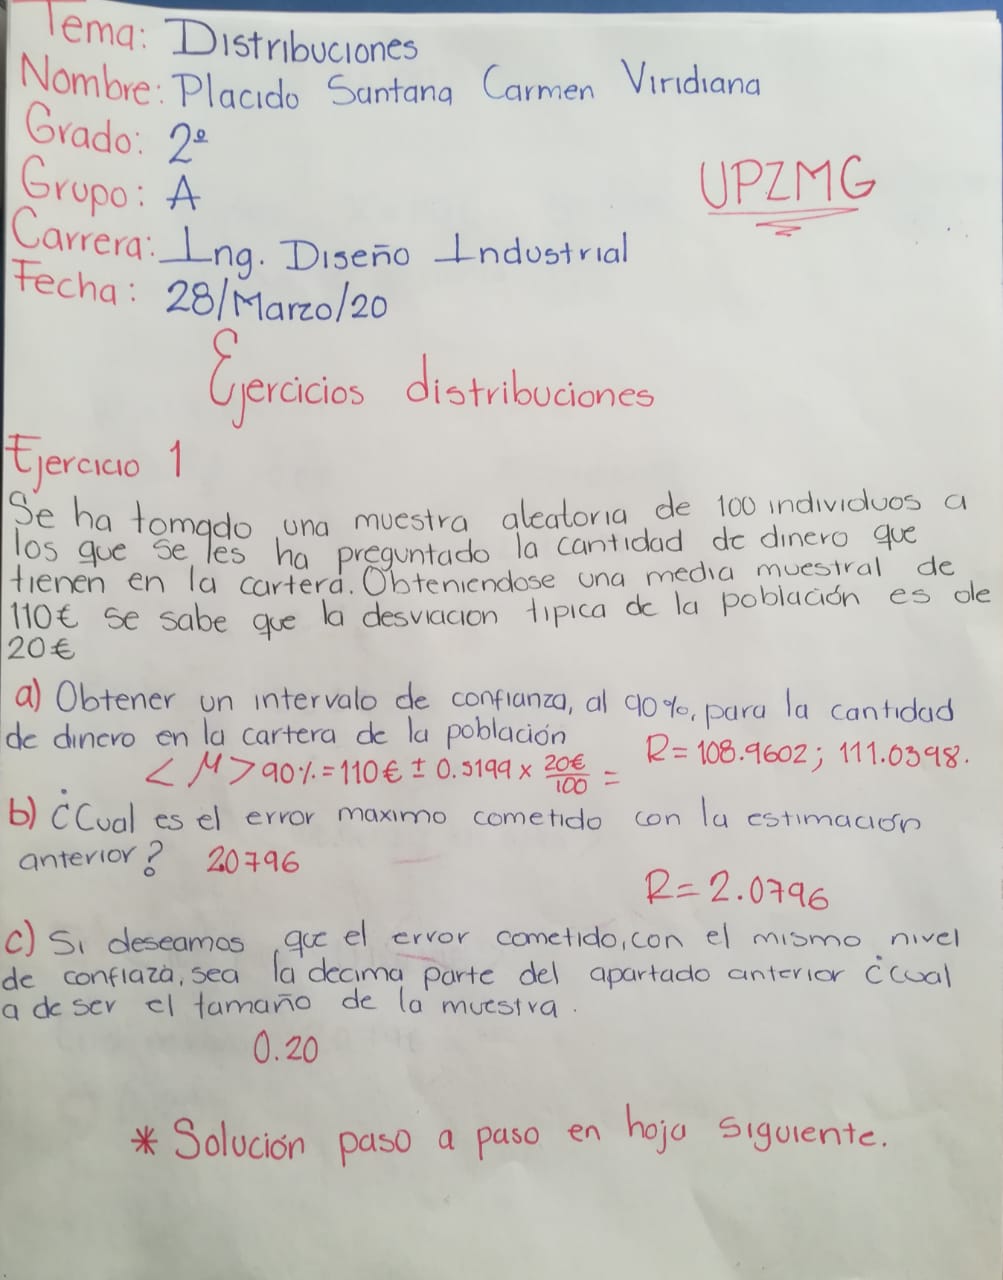 Tema: Distribuciones
Nombre: Placido Santana Carmen Viridiana
Grado: 2º
Grupo: A
UPZMG
Carrera: Ing. Diseño Industrial
Fecha: 28/Marzo/20
Ejercicios distribuciones
Ejercicio 1
Se ha tomado una muestra aleatoria de 100 individuos a
los que se les ha preguntado la cantidad de dinero que
tienen en la cartera. Obteniendose una media muestral de
110€ se sabe que la desviacion tipica de la población es de
20€
a) Obtener un intervalo de confianza, al 90%, para la cantidad
de dinero en la cartera de la población
< M > 90% = 110€ ± 0.5199 × 20€/100 =
R = 108.9602; 111.0398.
b) ¿Cual es el error maximo cometido con la estimación
anterior? 20796
R = 2.0796
c) Si deseamos que el error cometido, con el mismo nivel
de confiaza, sea la decima parte del apartado anterior ¿cual
a de ser el tamaño de la muestra.
0.20
* Solución paso a paso en hoja siguiente.